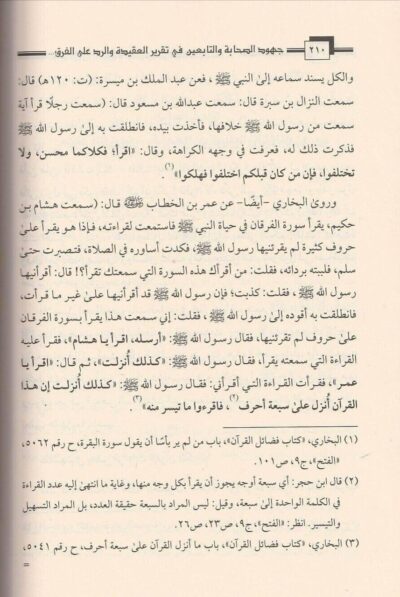 ٢١٠ جهود الصحابة والتابعين في تقرير العقيدة والرد على الفرق...
والكل يسند سماعه إلى النبي ﷺ، فعن عبد الملك بن ميسرة: (ت: ١٢٠هـ) قال:
سمعت النزال بن سبرة قال: سمعت عبدالله بن مسعود قال: (سمعت رجلًا قرأ آية
سمعت من رسول الله ﷺ خلافها، فأخذت بيده، فانطلقت به إلى رسول الله ﷺ
فذكرت ذلك له، فعرفت في وجهه الكراهة، وقال: «اقرأ؛ فكلاكما محسن، ولا
تختلفوا، فإن من كان قبلكم اختلفوا فهلكوا»(١).
وروى البخاري -أيضًا- عن عمر بن الخطاب ﷺ قال: (سمعت هشام بن
حكيم، يقرأ سورة الفرقان في حياة النبي ﷺ فاستمعت لقراءته، فإذا هو يقرأ على
حروف كثيرة لم يقرئنيها رسول الله ﷺ، فكدت أساوره في الصلاة، فتصبرت حتى
سلم، فلببته بردائه، فقلت: من أقرأك هذه السورة التي سمعتك تقرأ؟! قال: أقرأنيها
رسول الله ﷺ، فقلت: كذبت؛ فإن رسول الله ﷺ قد أقرأنيها على غير ما قرأت،
فانطلقت به أقوده إلى رسول الله ﷺ، فقلت: إني سمعت هذا يقرأ بسورة الفرقان
على حروف لم تقرئنيها، فقال رسول الله ﷺ: «أرسله، اقرأ يا هشام»، فقرأ عليه
القراءة التي سمعته يقرأ، فقال رسول الله ﷺ: «كذلك أنزلت»، ثم قال: «اقرأ يا
عمر»، فقرأت القراءة التي أقرأني: فقال رسول الله ﷺ: «كذلك أنزلت إن هذا
القرآن أُنزل على سبعة أحرف(٢)، فاقرءوا ما تيسر منه»(٣).
(١) البخاري، «كتاب فضائل القرآن»، باب من لم ير بأسًا أن يقول سورة البقرة، ح رقم ٥٠٦٢،
«الفتح»، ج٩، ص١٠١.
(٢) قال ابن حجر: أي سبعة أوجه يجوز أن يقرأ بكل وجه منها، وغاية ما انتهى إليه عدد القراءة
في الكلمة الواحدة إلى سبعة، وقيل: ليس المراد بالسبعة حقيقة العدد، بل المراد التسهيل
والتيسير. انظر: «الفتح»، ج٩، ص٢٣، ص٢٦.
(٣) البخاري، «كتاب فضائل القرآن»، باب ما أنزل القرآن على سبعة أحرف، ح رقم ٥٠٤١،
=